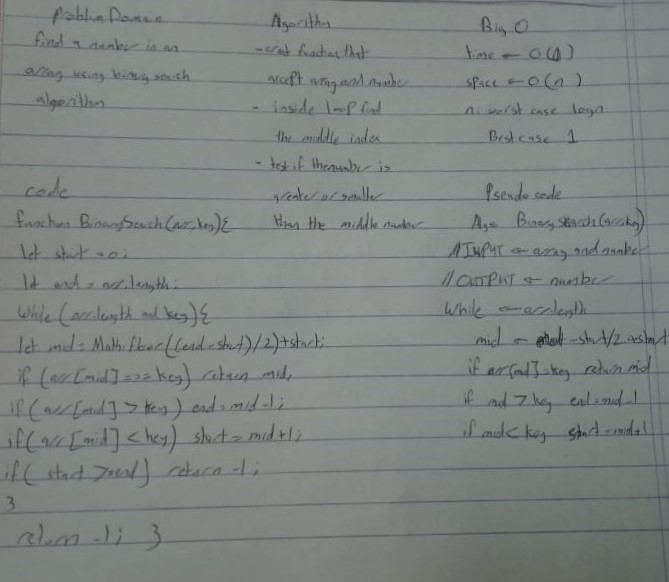 Problem Domain
find a number in an
array using binary search
algorithm
Agorithm
- creat function that
accept array and number
- inside loop find
the middle index
- test if the number is
greater or smaller
than the middle number
Big O
time ← O(n)
space ← O(n)
n: worst case logn
Best case 1
code
function BinarySearch(arr,key){
let start = 0;
let end = arr.length;
While (arr.length and key){
let mid = Math.floor((end-start)/2)+start;
if (arr[mid] === key) return mid;
if (arr[mid] > key) end = mid-1;
if (arr[mid] < key) start = mid+1;
if( start > end) return -1;
}
return -1; }
Pseudo code
Algo Binary Search(arr,key)
//INPUT ← array and number
//OUTPUT ← number
While ← arr.length
mid ← end -start/2 +start
if arr[mid] = key return mid
if mid > key end = mid-1
if mid < key start = mid+1